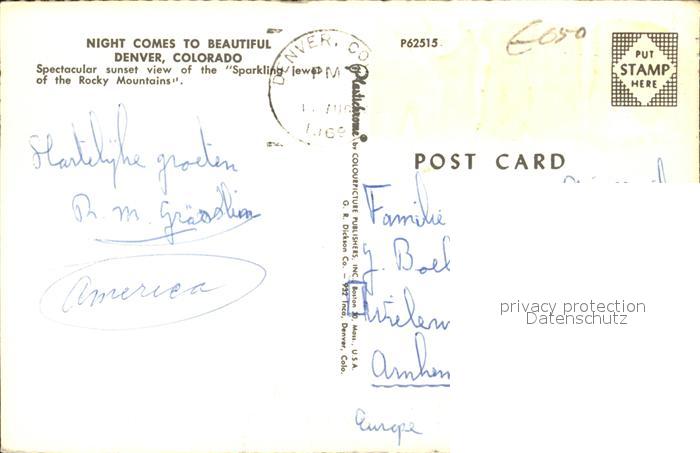 NIGHT COMES TO BEAUTIFUL
DENVER, COLORADO
Spectacular sunset view of the "Sparkling jewel
of the Rocky Mountains".
DENVER, CO
PM
P62515
PUT
STAMP
HERE
POST CARD
Plastichrome® by COLOURPICTURE PUBLISHERS, INC. Boston 30, Mass., U.S.A.
G. R. Dickson Co. – 952 Inca, Denver, Colo.
Hartelijke groeten
America
Familie
J. Boel
Wielew
Arnhem
Europe
privacy protection
Datenschutz